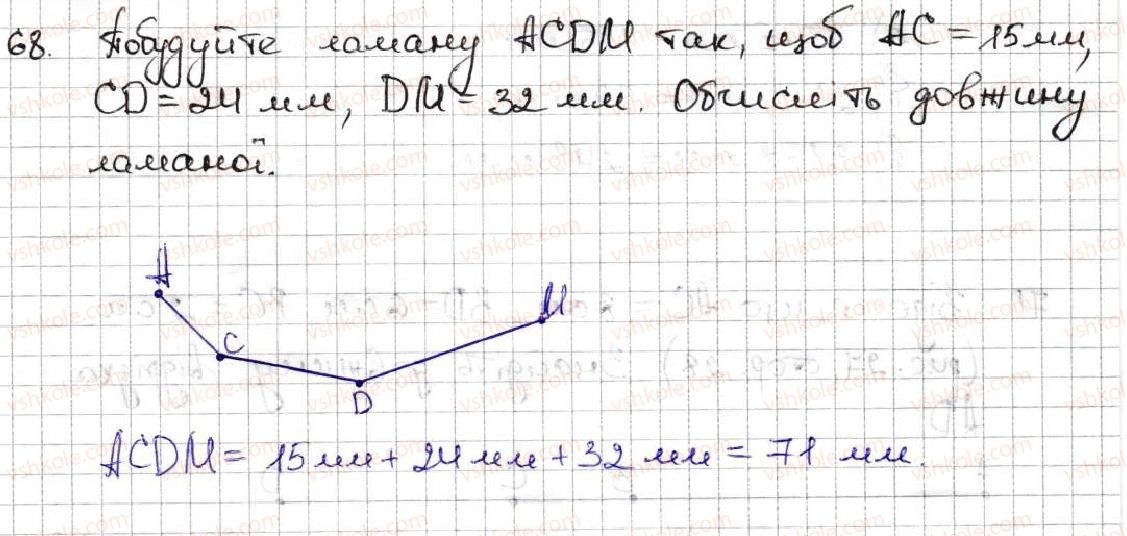 68. Побудуйте ламану ACDM так, щоб AC = 15 мм,
CD = 24 мм, DM = 32 мм. Обчисліть довжину
ламаної.
A
M
C
D
ACDM = 15 мм + 24 мм + 32 мм = 71 мм.